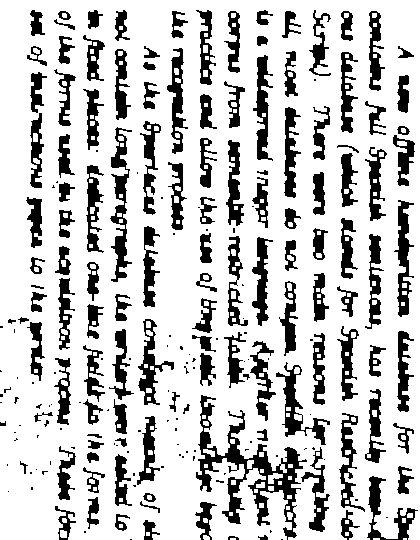 A new offline handwritten database for the Spa
contains full Spanish sentences, has recently been
ous database (which stands for Spanish Restricted-do
Script). There were two main reasons for creating
all, most databases do not contain Spanish
is a widespread major language. Another
corpus from semantic-restricted tasks. These
practice and allow the use of linguistic knowledge beyo
the recognition process.
As the Spartacus database consisted mainly of sh
not contain long paragraphs, the writers were asked to
in fixed places: dedicated one-line fields in the forms
of the forms used in the acquisition process. These form
set of instructions given to the writer.